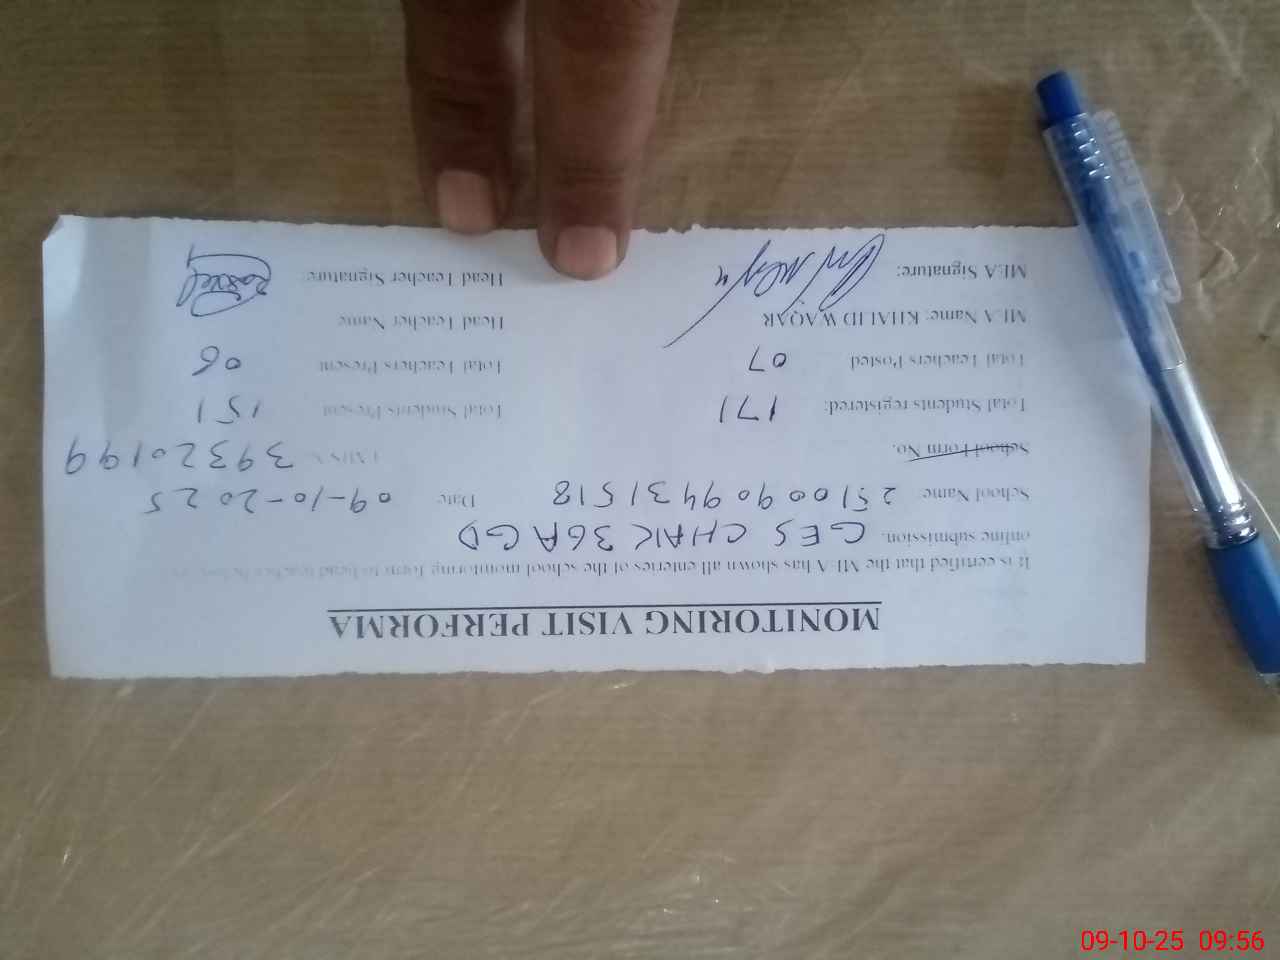 MONITORING VISIT PERFORMA
It is certified that the MEA has shown all enteries of the school monitoring form to head teacher before
online submission. GES CHAK 36A GD
School Name Date 09-10-2025
School Form No. EMIS 39320199
Total Students registered: 171 Total Students Present 151
Total Teachers Posted 07 Total Teachers Present 06
MEA Name: KHALID WAQAR Head Teacher Name
MEA Signature: Head Teacher Signature:
09-10-25 09:56